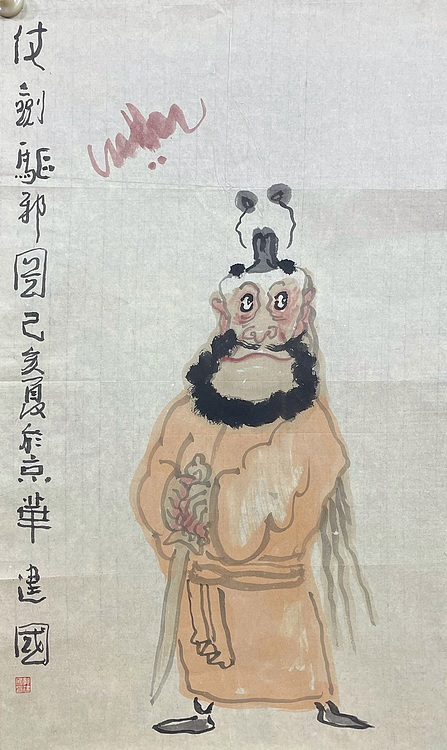 仗劍驅邪圖己亥夏於京華建國